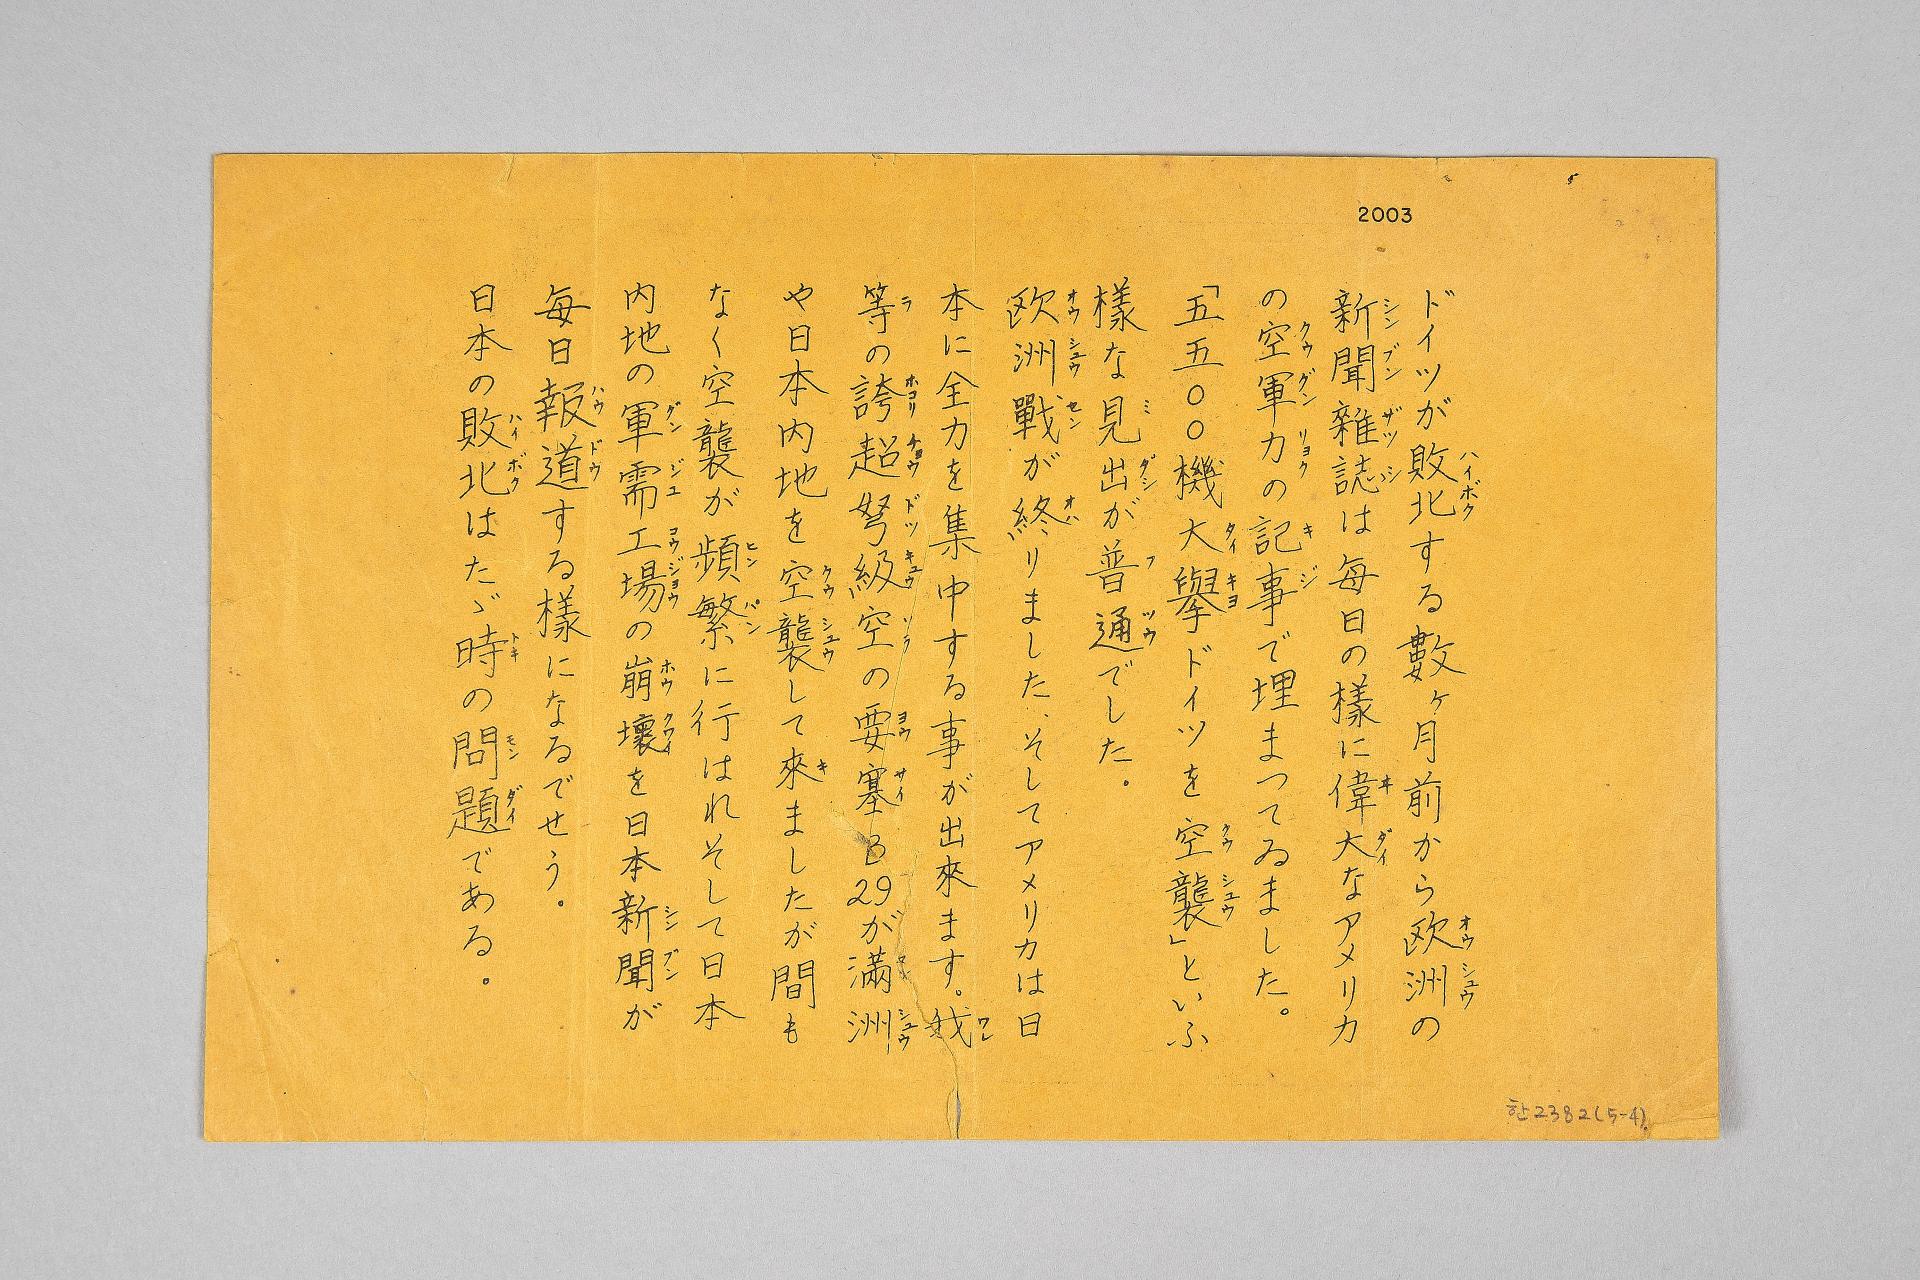 2003
ドイツが敗北する數ヶ月前から欧洲の
新聞雜誌は毎日の樣に偉大なアメリカ
の空軍力の記事で埋まつてゐました。
「五五〇〇機大擧ドイツを空襲」といふ
樣な見出が普通でした。
欧洲戰が終りました、そしてアメリカは日
本に全力を集中する事が出來ます。我
等の誇超弩級空の要塞B29が滿洲
や日本内地を空襲して來ましたが間も
なく空襲が頻繁に行はれそして日本
内地の軍需工場の崩壞を日本新聞が
毎日報道する樣になるでせう。
日本の敗北はたゞ時の問題である。
한2382(5-4)